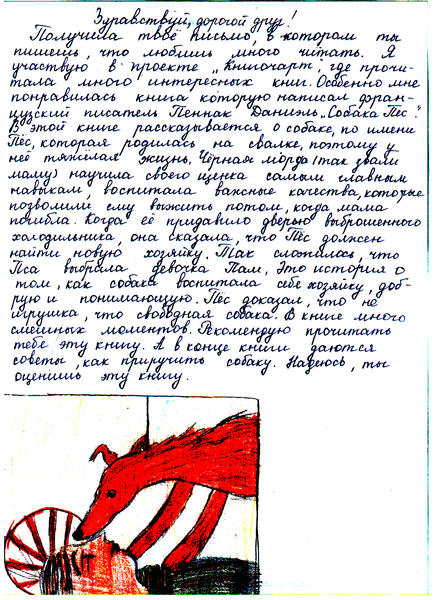 Здравствуй, дорогой друг!
Получила твоё письмо, в котором ты
пишешь, что любишь много читать. Я
участвую в проекте „Книгочарт", где прочи-
тала много интересных книг. Особенно мне
понравилась книга которую написал фран-
цузский писатель Пеннак Даниэль „Собака Пёс".
В этой книге рассказывается о собаке, по имени
Пёс, которая родилась на свалке, поэтому у
неё тяжёлая жизнь. Чёрная Морда (так звали
маму) научила своего щенка самым главным
навыкам, воспитала важные качества, которые
позволили ему выжить потом, когда мама
погибла. Когда её придавило дверью выброшенного
холодильника, она сказала, что Пёс должен
найти новую хозяйку. Так сложилось, что
Пса выбрала девочка Пам, Это история о
том, как собака воспитала себе хозяйку, доб-
рую и понимающую. Пёс доказал, что не
игрушка, что свободная собака. В книге много
смешных моментов. Рекомендую прочитать
тебе эту книгу. А в конце книги даются
советы, как приручить собаку. Надеюсь, ты
оценишь эту книгу.